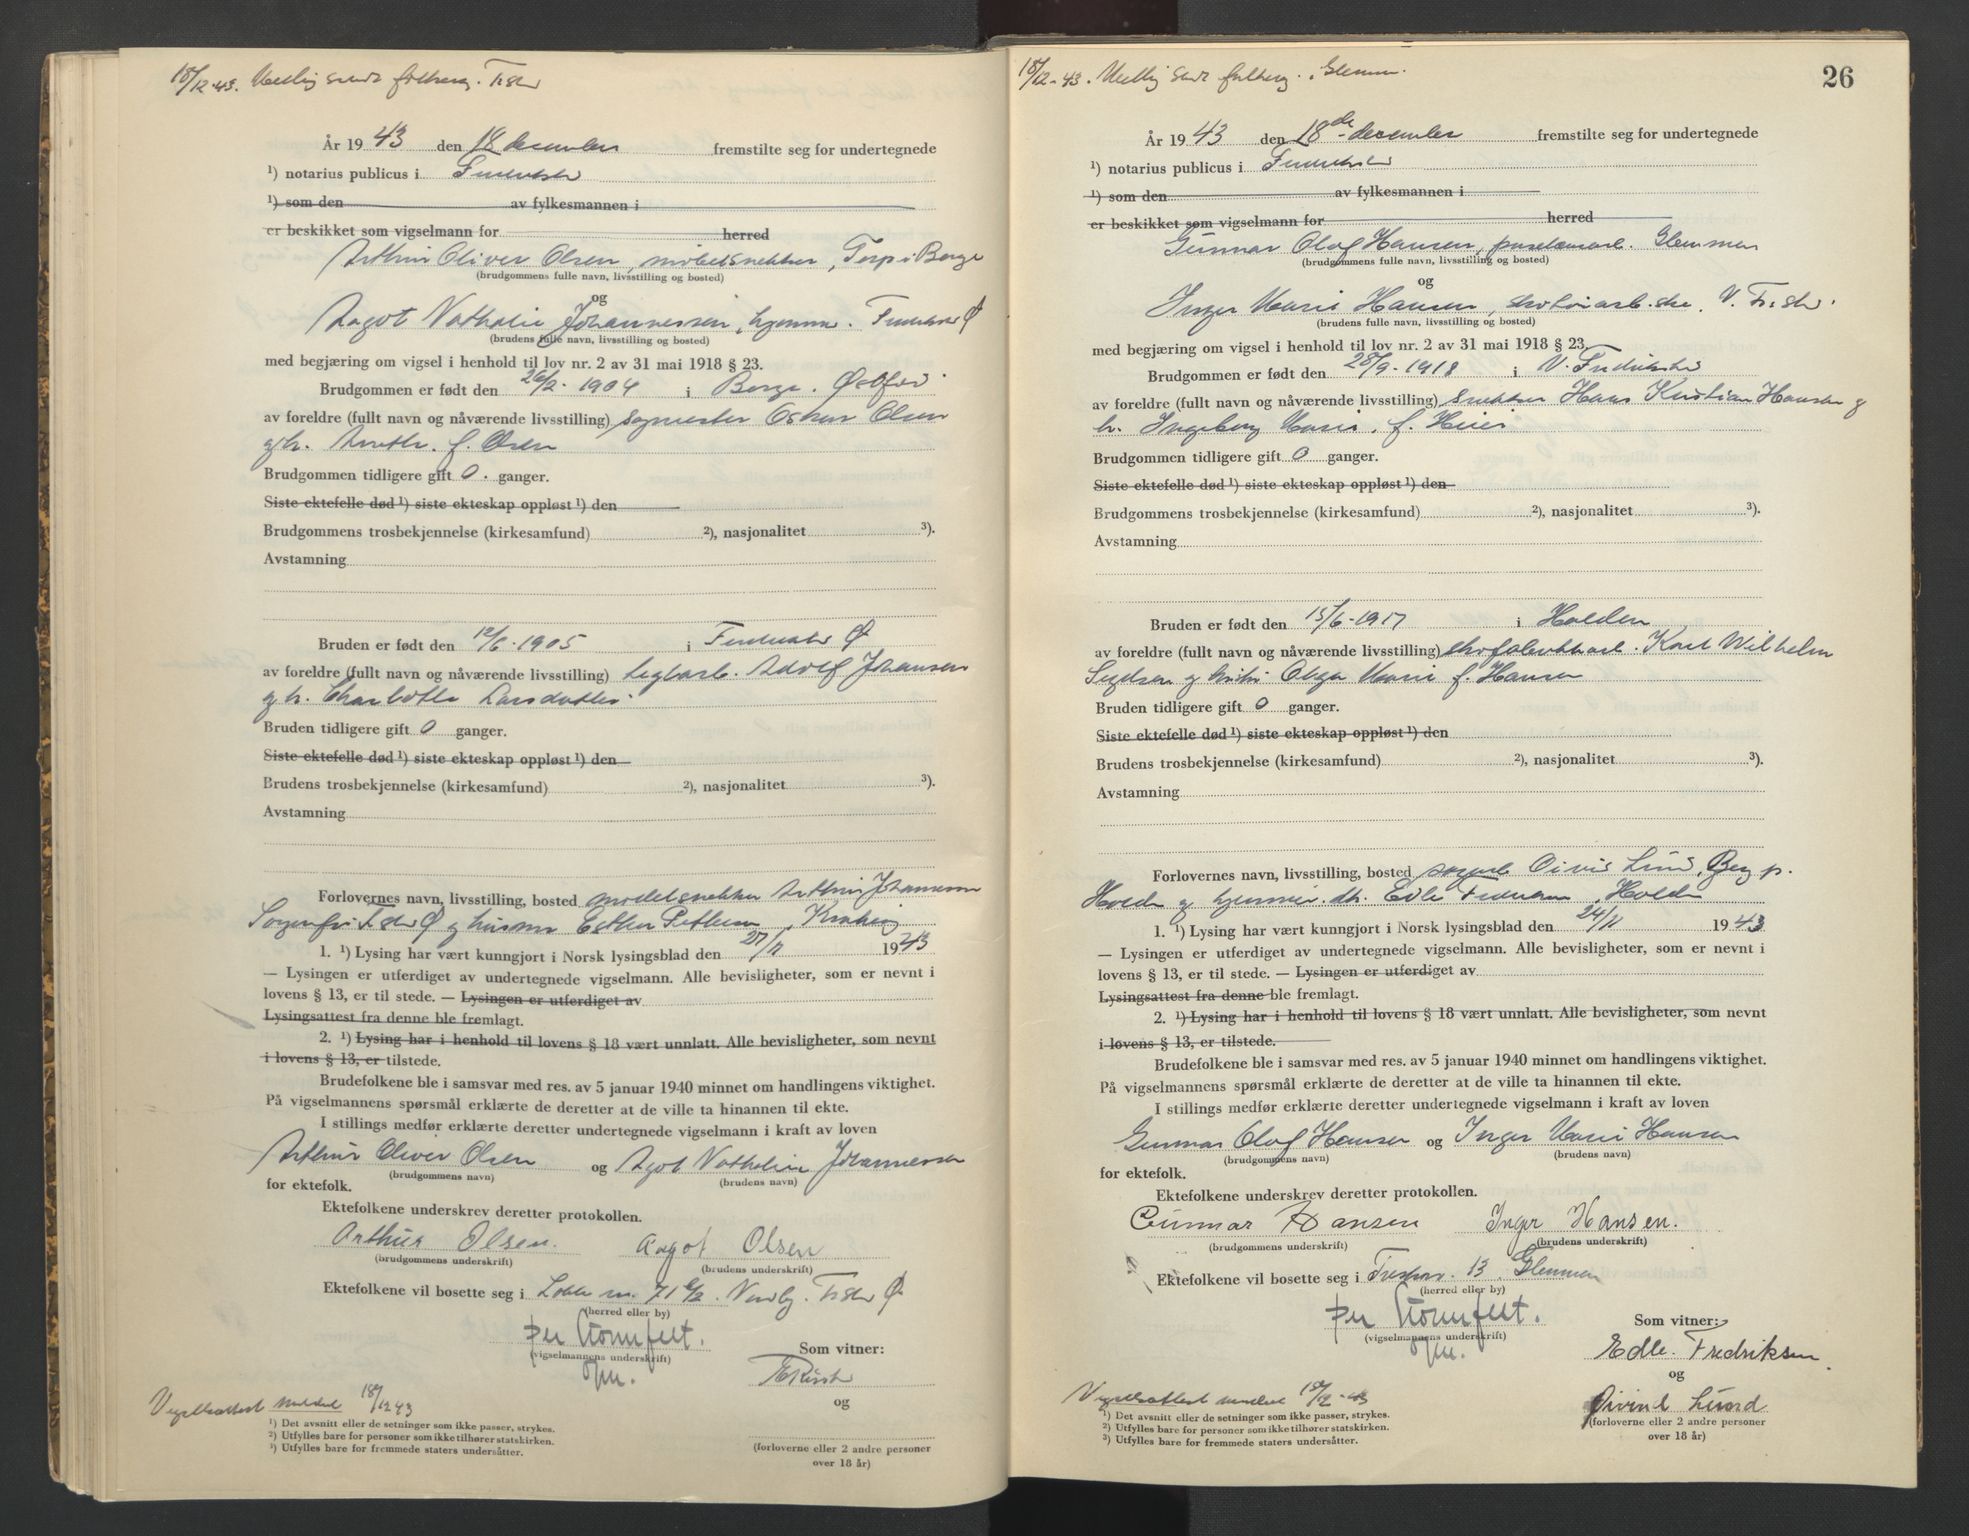 18/12-43.
År 1943 den 18 december fremstilte seg for undertegnede
¹) notarius publicus i
¹) som den av fylkesmannen i
er beskikket som vigselmann for herred
Arthur Oliver Olsen, møbelsnekker, Torp i Borge
(brudgommens fulle navn, livsstilling og bosted)
og
Aagot Nathalie Johannessen, hjemme.
(brudens fulle navn, livsstilling og bosted)
med begjæring om vigsel i henhold til lov nr. 2 av 31 mai 1918 § 23.
Brudgommen er født den 26/2-1904 i Borge. Østfold
av foreldre (fullt navn og nåværende livsstilling) sagmester Oskar Olsen
og h. f. Olsen
Brudgommen tidligere gift 0. ganger.
Siste ektefelle død ¹) siste ekteskap oppløst ¹) den
Brudgommens trosbekjennelse (kirkesamfund) ²), nasjonalitet ³).
Avstamning
Bruden er født den 12/6-1905 i Ø
av foreldre (fullt navn og nåværende livsstilling) teglarb. Adolf Johansen
og h. Charlotte Larsdatter
Bruden tidligere gift 0 ganger.
Siste ektefelle død ¹) siste ekteskap oppløst ¹) den
Brudens trosbekjennelse (kirkesamfund) ²), nasjonalitet ³).
Avstamning
Forlovernes navn, livsstilling, bosted Arthur Johannessen
Ø og Esther
1. ¹) Lysing har vært kunngjort i Norsk lysingsblad den 27/11 1943
— Lysingen er utferdiget av undertegnede vigselmann. Alle bevisligheter, som er nevnt i
lovens § 13, er til stede. — Lysingen er utferdiget av
Lysingsattest fra denne ble fremlagt.
2. ¹) Lysing har i henhold til lovens § 18 vært unnlatt. Alle bevisligheter, som nevnt
i lovens § 13, er tilstede.
Brudefolkene ble i samsvar med res. av 5 januar 1940 minnet om handlingens viktighet.
På vigselmannens spørsmål erklærte de deretter at de ville ta hinannen til ekte.
I stillings medfør erklærte deretter undertegnede vigselmann i kraft av loven
Arthur Oliver Olsen og Agot Nathalie Johannessen
(brudgommens navn) (brudens navn)
for ektefolk.
Ektefolkene underskrev deretter protokollen.
Arthur Olsen. Aagot Olsen
(brudgommens underskrift) (brudens underskrift)
Ektefolkene vil bosette seg i Ø
(herred eller by)
Som vitner:
(vigselmannens underskrift)
og
Vigselsattest meddelt 18/12 43
¹) Det avsnitt eller de setninger som ikke passer, strykes.
²) Utfylles bare for personer som ikke tilhører statskirken.
³) Utfylles bare for fremmede staters undersåtter.
(forloverne eller 2 andre personer
over 18 år)
26
18/12-43.
År 1943 den 18de december fremstilte seg for undertegnede
¹) notarius publicus i
¹) som den av fylkesmannen i
er beskikket som vigselmann for herred
Gunnar Olaf Hansen, Glemmen
(brudgommens fulle navn, livsstilling og bosted)
og
Inger Marie Hansen,
(brudens fulle navn, livsstilling og bosted)
med begjæring om vigsel i henhold til lov nr. 2 av 31 mai 1918 § 23.
Brudgommen er født den 28/9-1918 i V. Fredrikstad
av foreldre (fullt navn og nåværende livsstilling) snekker Hans Kristian Hansen og
h. Ingeborg Marie, f.
Brudgommen tidligere gift 0 ganger.
Siste ektefelle død ¹) siste ekteskap oppløst ¹) den
Brudgommens trosbekjennelse (kirkesamfund) ²), nasjonalitet ³).
Avstamning
Bruden er født den 15/6-1917 i Halden
av foreldre (fullt navn og nåværende livsstilling) Karl Wilhelm
og Olga Marie f. Hansen
Bruden tidligere gift 0 ganger.
Siste ektefelle død ¹) siste ekteskap oppløst ¹) den
Brudens trosbekjennelse (kirkesamfund) ²), nasjonalitet ³).
Avstamning
Forlovernes navn, livsstilling, bosted Lund, Berg p.
Halden og Halden
1. ¹) Lysing har vært kunngjort i Norsk lysingsblad den 24/11 1943
— Lysingen er utferdiget av undertegnede vigselmann. Alle bevisligheter, som er nevnt i
lovens § 13, er til stede. — Lysingen er utferdiget av
Lysingsattest fra denne ble fremlagt.
2. ¹) Lysing har i henhold til lovens § 18 vært unnlatt. Alle bevisligheter, som nevnt
i lovens § 13, er tilstede.
Brudefolkene ble i samsvar med res. av 5 januar 1940 minnet om handlingens viktighet.
På vigselmannens spørsmål erklærte de deretter at de ville ta hinannen til ekte.
I stillings medfør erklærte deretter undertegnede vigselmann i kraft av loven
Gunnar Olaf Hansen og Inger Marie Hansen
(brudgommens navn) (brudens navn)
for ektefolk.
Ektefolkene underskrev deretter protokollen.
Gunnar Hansen Inger Hansen.
(brudgommens underskrift) (brudens underskrift)
Ektefolkene vil bosette seg i 13, Glemmen
(herred eller by)
Som vitner:
(vigselmannens underskrift)
Edle. Fredriksen
og
Øivind Lund
Vigselsattest meddelt 18/12-43
¹) Det avsnitt eller de setninger som ikke passer, strykes.
²) Utfylles bare for personer som ikke tilhører statskirken.
³) Utfylles bare for fremmede staters undersåtter.
(forloverne eller 2 andre personer
over 18 år)